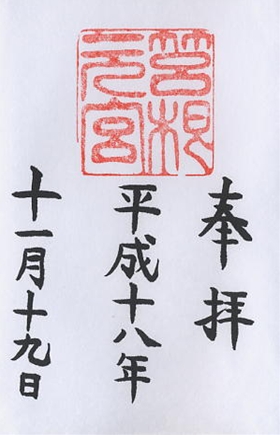 筥根元宮
奉拝
平成十八年
十一月十九日